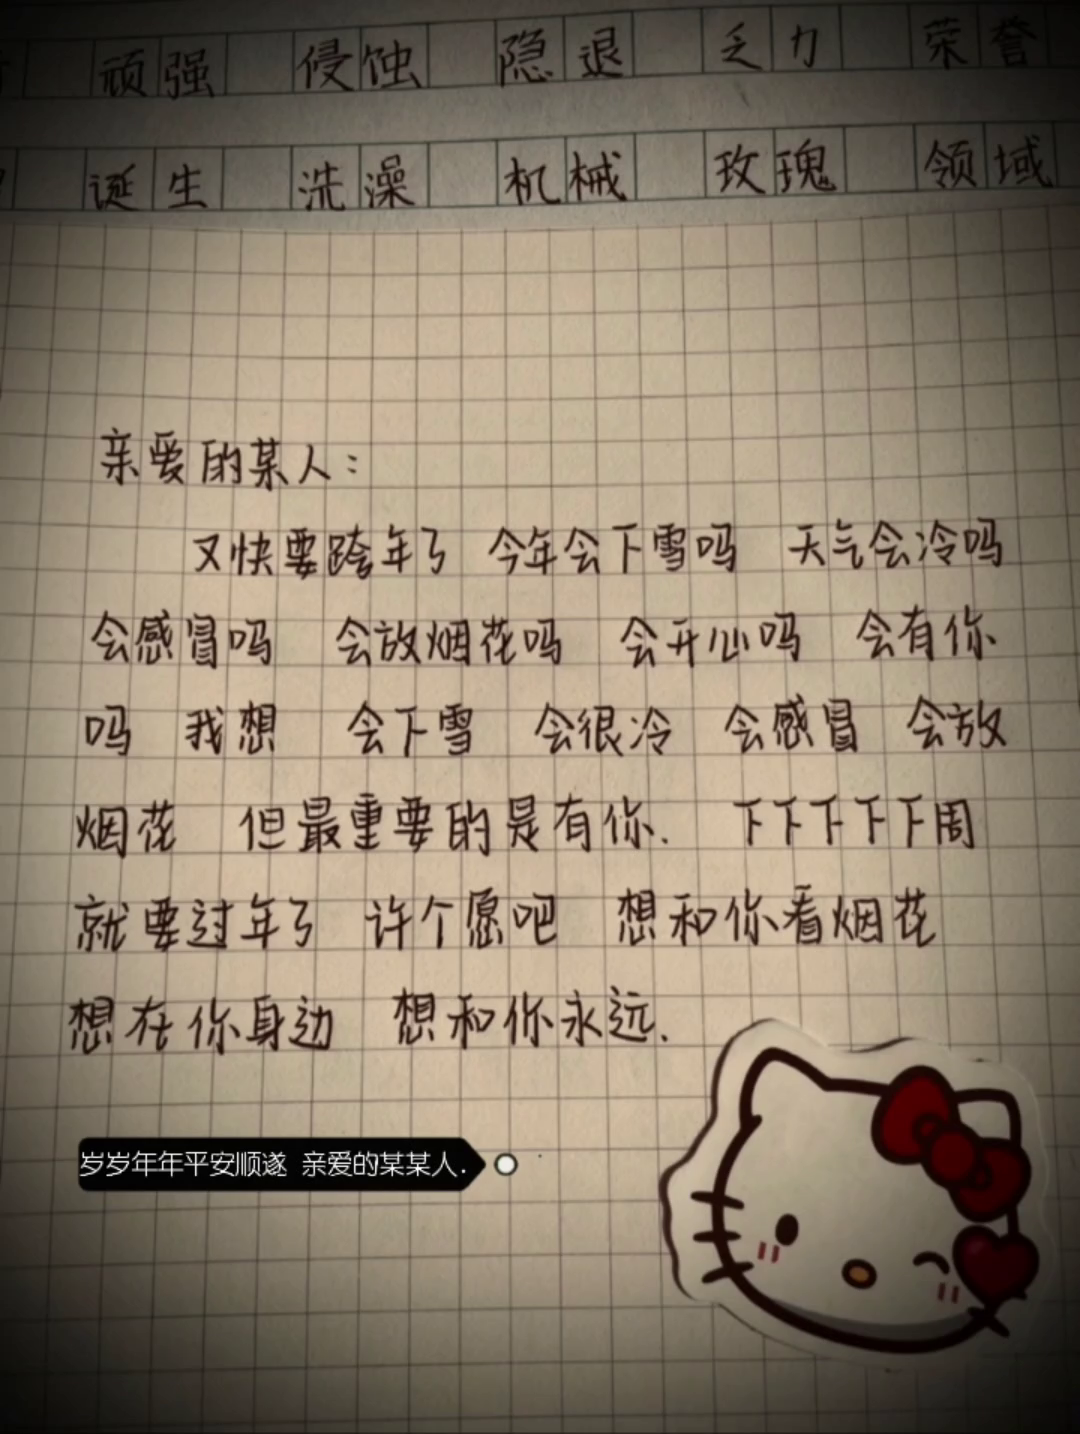 顽强 侵蚀 隐退 乏力 荣誉
诞生 洗澡 机械 玫瑰 领域
亲爱的某人：
又快要跨年了 今年会下雪吗 天气会冷吗
会感冒吗 会放烟花吗 会开心吗 会有你
吗 我想 会下雪 会很冷 会感冒 会放
烟花 但最重要的是有你. 下下下下下周
就要过年了 许个愿吧 想和你看烟花
想在你身边 想和你永远.
岁岁年年平安顺遂 亲爱的某某人.